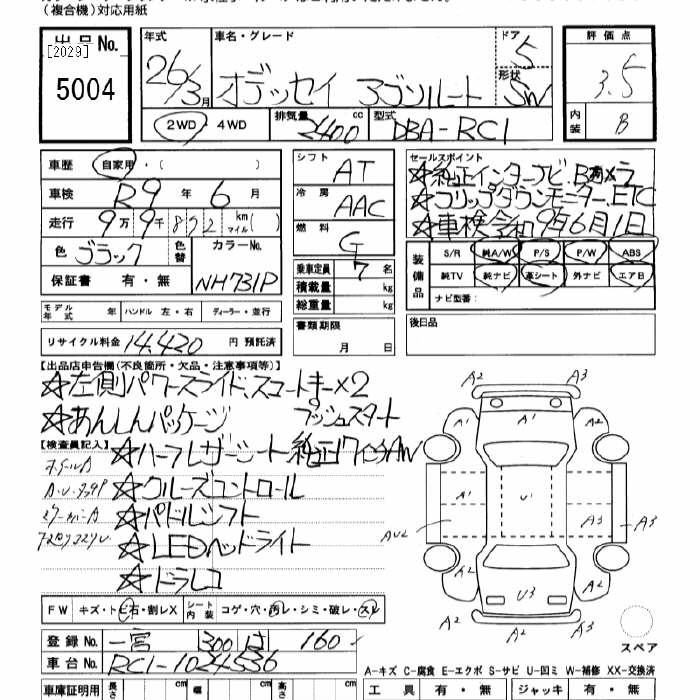 (複合機)対応用紙
出品No.
[2029]
5004
年式 26/3月
車名・グレード オデッセイ アブソルート
ドア 5
形状 SW
2WD・4WD
排気量 2400 cc
型式 DBA-RC1
評価点 3.5
内装 B
車歴 自家用・( )
車検 R9年 6月
走行 9万9千892 km マイル( )
色 ブラック 色替 カラーNo. NH731P
保証書 有・無
シフト AT
冷房 AAC
燃料 G
乗車定員 7名
積載量 kg
総重量 kg
書類期限
月 日
セールスポイント
☆純正インターナビ.Bカメラ
☆フリップダウンモニター.ETC
☆車検令和9年6月1日
装備品
S/R 純A/W P/S P/W ABS
純TV 純ナビ 革シート 外ナビ エアB
ナビ型番:
後日品
モデル年式 年 ハンドル 左・右 ディーラー・並行
リサイクル料金 14,420 円 預託済
【出品店申告欄(不良箇所・欠品・注意事項等)】
☆左側パワースライド.スマートキー×2
☆あんしんパッケージ プッシュスタート
【検査員記入】
☆ハーフレザーシート 純正17インチAW
☆クルーズコントロール
☆パドルシフト
☆LEDヘッドライト
☆ドラレコ
A2 A3
A2 A1 A2
A1 U1 A3 A3
AU2
A2 U3 A2
A2 A3
スペア
FW キズ・トビ石・割レX シート内装 コゲ・穴・汚レ・シミ・破レ・スレ
登録No. 一宮 300 は 160
車台No. RC1-1021536
A-キズ C-腐食 E-エクボ S-サビ U-凹ミ W-補修 XX-交換済
車庫証明用 長さ cm 幅 cm 高さ cm
工具 有・無 ジャッキ 有・無